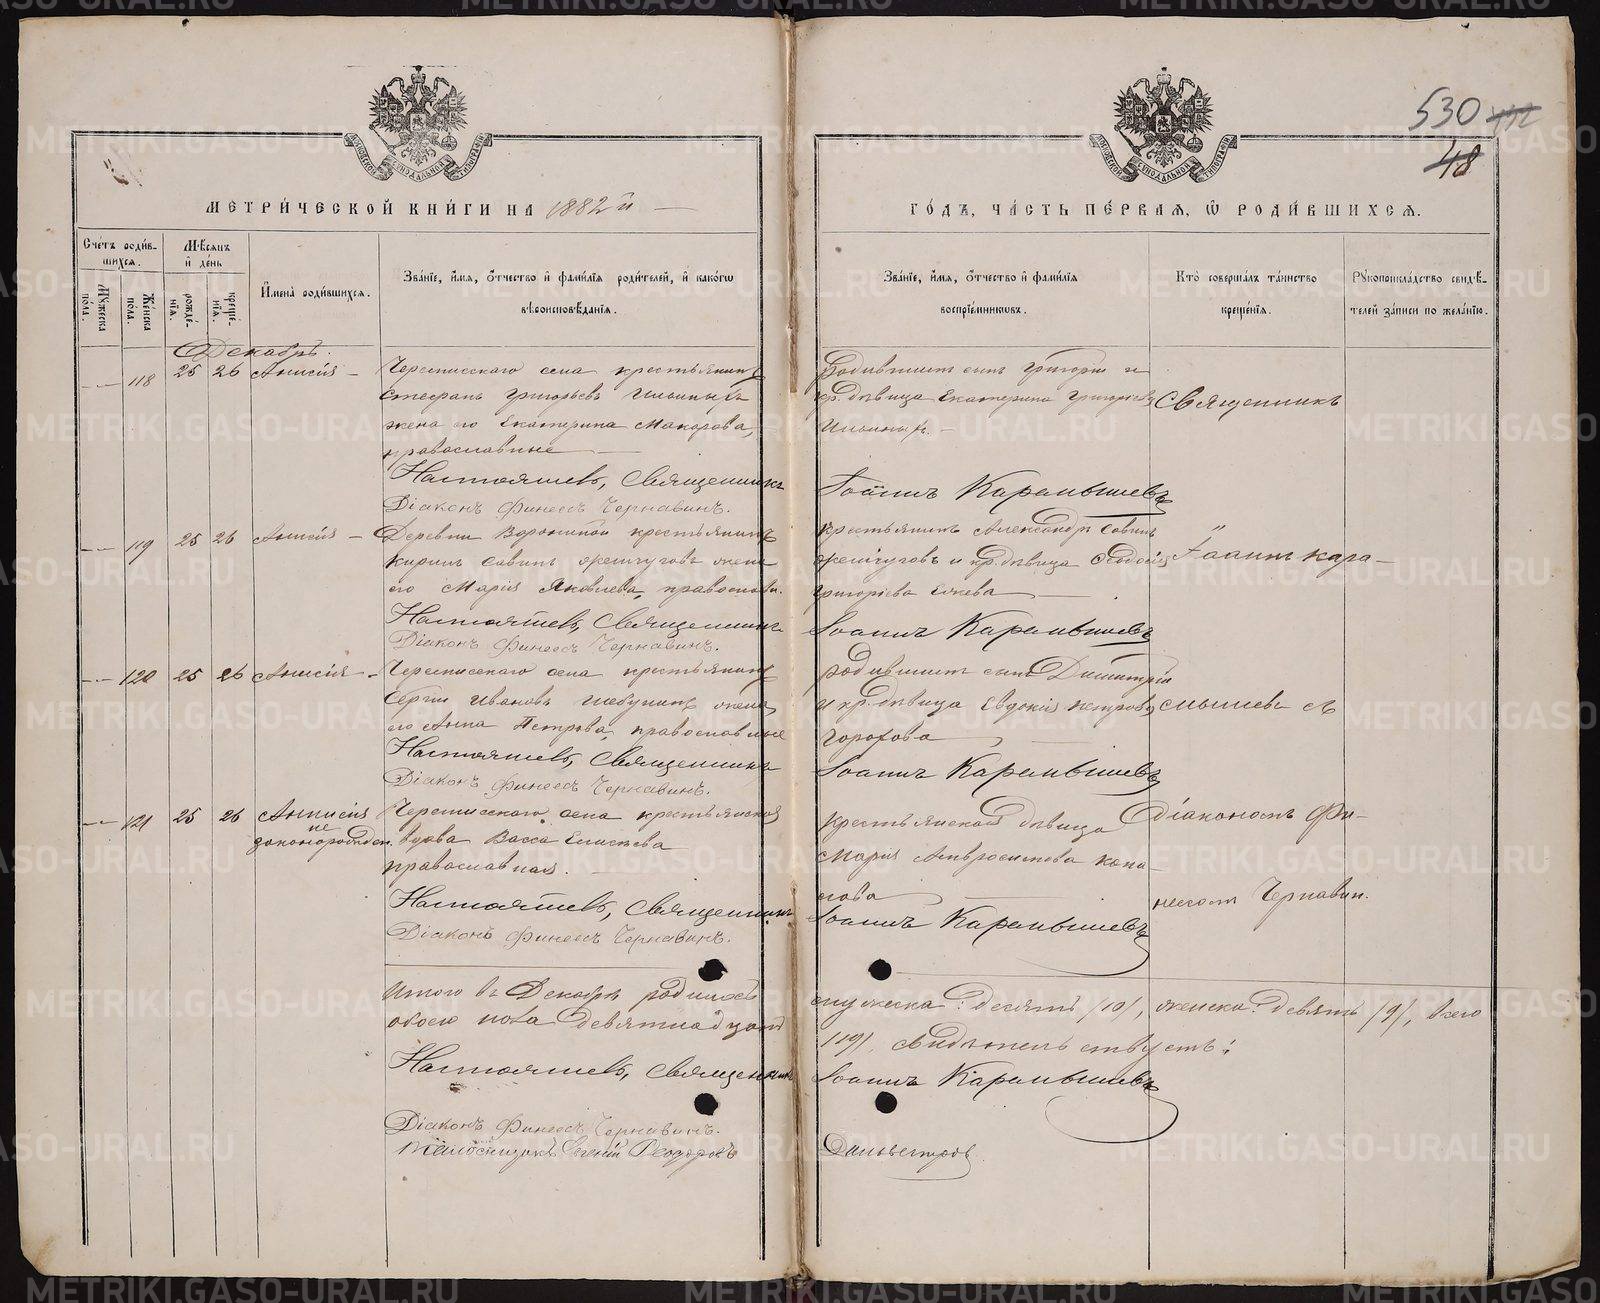 530
48
МЕТРИ́ЧЕСКОЙ КНИ́ГИ НА 1882 й
ГО́ДЪ, ЧА́СТЬ ПЕ́РВАЯ, Ѡ РОДИ́ВШИХСЯ.
Сче́тъ роди́в-
шихся.
Мѣсяцъ
и день
Мужеска
пола.
Женска
пола.
рожде-
нія.
креще-
нія.
Имена роди́вшихся.
Зва́ніе, и́мя, о́тчество и фами́лія роди́телей, и како́гѡ
вѣроисповѣ́данія.
Зва́ніе, и́мя, о́тчество и фами́лія
воспріе́мниковъ.
Кто̀ соверша́лъ та́инство
креще́нія.
Рукоприкла́дство свидѣ́-
телей за́писи по жела́нію.
Декабрь.
118 25 26 Анисія
Черемисскаго села крестьянинъ
Стефанъ Григорьевъ Ильиныхъ
жена его Екатерина Макарова,
православные
Настоятель, Священникъ
Діаконъ Финеесъ Чернавинъ.
Родившихъ сынъ Григорій и
кр. дѣвица Екатерина Григорьева
Ильиныхъ.
Священникъ
Іоаннъ Карамышевъ
119 25 26 Анисія
Деревни Ворониной крестьянинъ
Кирилъ Савинъ жена
его Марія Яковлева, православн.
Настоятель, Священникъ
Діаконъ Финеесъ Чернавинъ.
крестьянинъ Александръ Савинъ
и кр. дѣвица Ѳеодосія
Григоріева
Іоаннъ Кара-
Іоаннъ Карамышевъ
120 25 26 Анисія
Черемисскаго села крестьянинъ
Сергій Ивановъ жена
его Анна Петрова, православные
Настоятель, Священникъ
Діаконъ Финеесъ Чернавинъ.
родившихъ сынъ Димитрій
и кр. дѣвица Евдокія Петрова
Горохова
мышевъ съ
Іоаннъ Карамышевъ
121 25 26 Анисія
незаконорожден.
Черемисскаго села крестьянская
вдова Васса
православная.
Настоятель, Священникъ
Діаконъ Финеесъ Чернавинъ.
крестьянская дѣвица
Марія Амвросимова Коно-
діакономъ Фи-
неесомъ Чернавин.
Іоаннъ Карамышевъ
Итого въ Декабрѣ родилось
обоего пола девятнадцать
мужеска: десять /10/, женска: девять /9/, всего
/19/. Свидѣтельствуетъ:
Настоятель, Священникъ
Іоаннъ Карамышевъ
Діаконъ Финеесъ Чернавинъ.
Псаломщикъ Евгеній Ѳеодоровъ
Сильвестровъ
METRIKI.GASO-URAL.RU